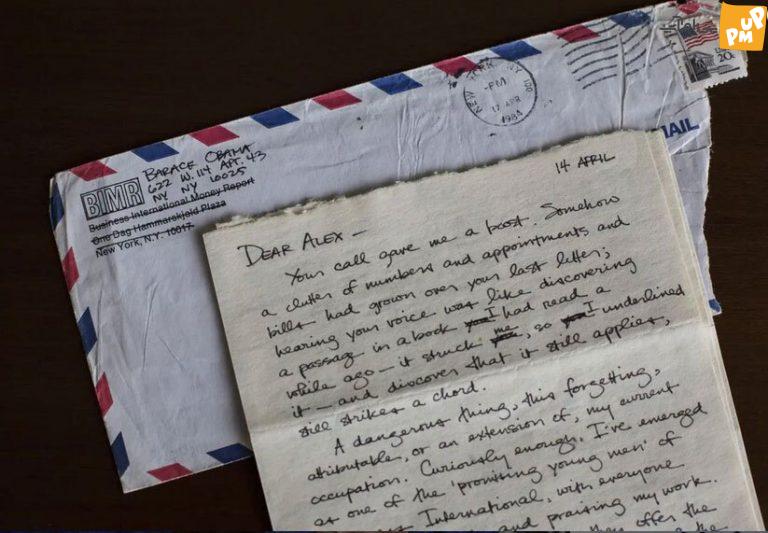 PM
UP
NEW YORK, NY 100
-PM-
17 APR
1984
20c
MAIL
BARACK OBAMA
622 W. 114 APT. 43
NY NY 10025
BIMR
Business International Money Report
One Dag Hammarskjold Plaza
New York, N.Y. 10017
14 APRIL
DEAR ALEX —
Your call gave me a boost. Somehow
a clutter of numbers and appointments and
bills had grown over your last letter;
hearing your voice was like discovering
a passage in a book I had read a
while ago — it struck me, so I underlined
it — and discover that it still applies,
still strikes a chord.
A dangerous thing, this forgetting,
attributable, or an extension of, my current
occupation. Curiously enough, I've emerged
as one of the 'promising young men' of
International, with everyone
and praising my work.
offer the
the